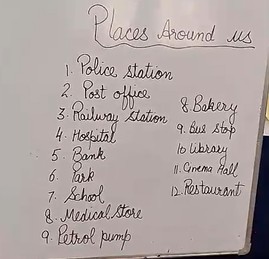 Places Around us
1. Police station
2. Post office
3. Railway station
4. Hospital
5. Bank
6. Park
7. School
8. Medical Store
9. Petrol pump
8. Bakery
9. Bus stop
10 Library
11. Cinema Hall
12. Restaurant